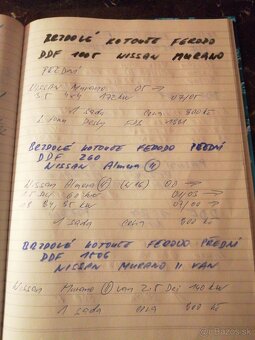 BRZDOVÉ KOTOUČE FERODO
DDF 1005 NISSAN MURANO
PŘEDNÍ
NISSAN Murano 05 →
3.5 4x4 172 kW 07/05
1 sada Cena 800 kč
Desky FDB
BRZDOLÉ KOTOUČE FERODO PŘEDNÍ
DDF 260
NISSAN Almera
Nissan Almera (N16) 00 →
1 sada Cena 800 kč
BRZDOLÉ KOTOUČE FERODO PŘEDNÍ
DDF 1506
NISSAN MURANO II VAN
Nissan Murano van 2.5 Dci 140 kW
1 sada cena 800 kč
bazos.sk